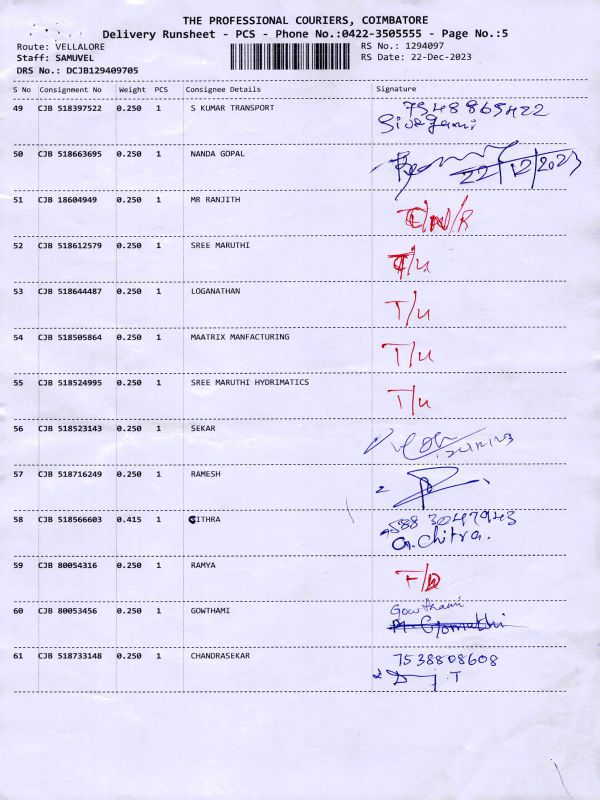 THE PROFESSIONAL COURIERS, COIMBATORE
Delivery Runsheet - PCS - Phone No.:0422-3505555 - Page No.:5
Route: VELLALORE RS No.: 1294097
Staff: SAMUVEL RS Date: 22-Dec-2023
DRS No.: DCJB129409705
S No Consignment No Weight PCS Consignee Details Signature
49 CJB 518397522 0.250 1 S KUMAR TRANSPORT 7548865422
Sivagami
50 CJB 518663695 0.250 1 NANDA GOPAL 22/12/2023
51 CJB 18604949 0.250 1 MR RANJITH
52 CJB 518612579 0.250 1 SREE MARUTHI T/U
53 CJB 518644487 0.250 1 LOGANATHAN T/U
54 CJB 518505864 0.250 1 MAATRIX MANFACTURING T/U
55 CJB 518524995 0.250 1 SREE MARUTHI HYDRIMATICS T/U
56 CJB 518523143 0.250 1 SEKAR
57 CJB 518716249 0.250 1 RAMESH
58 CJB 518566603 0.415 1 CITHRA
G.Chitra.
59 CJB 80054316 0.250 1 RAMYA
60 CJB 80053456 0.250 1 GOWTHAMI Gowthami
61 CJB 518733148 0.250 1 CHANDRASEKAR 7538808608